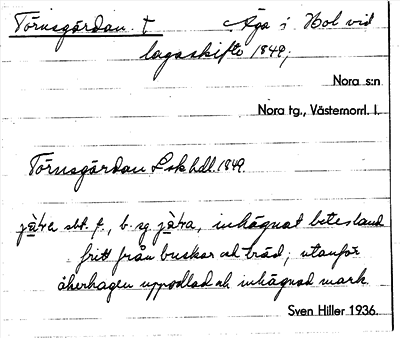 Törnsgärdan t Äga i Hol vid
lagaskifte 1849;
Nora s:n
Nora tg., Västernorrl. l.
Törnsgärdan Lskhdl. 1849.
sbt. f., b. sg. inhägnat betesland
fritt från buskar och träd; utanför
åkerhagen uppodlad och inhägnad mark.
Sven Hiller 1936.